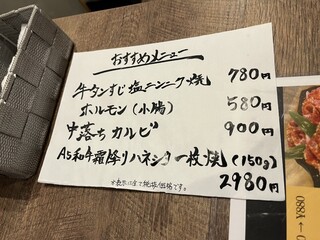 おすすめメニュー
牛タンすじ塩ニンニク焼 780円
ホルモン(小腸) 580円
中落ちカルビ 900円
A5和牛霜降りハネシタ一枚焼(150g)
2980円
※表示は全て税抜価格です。